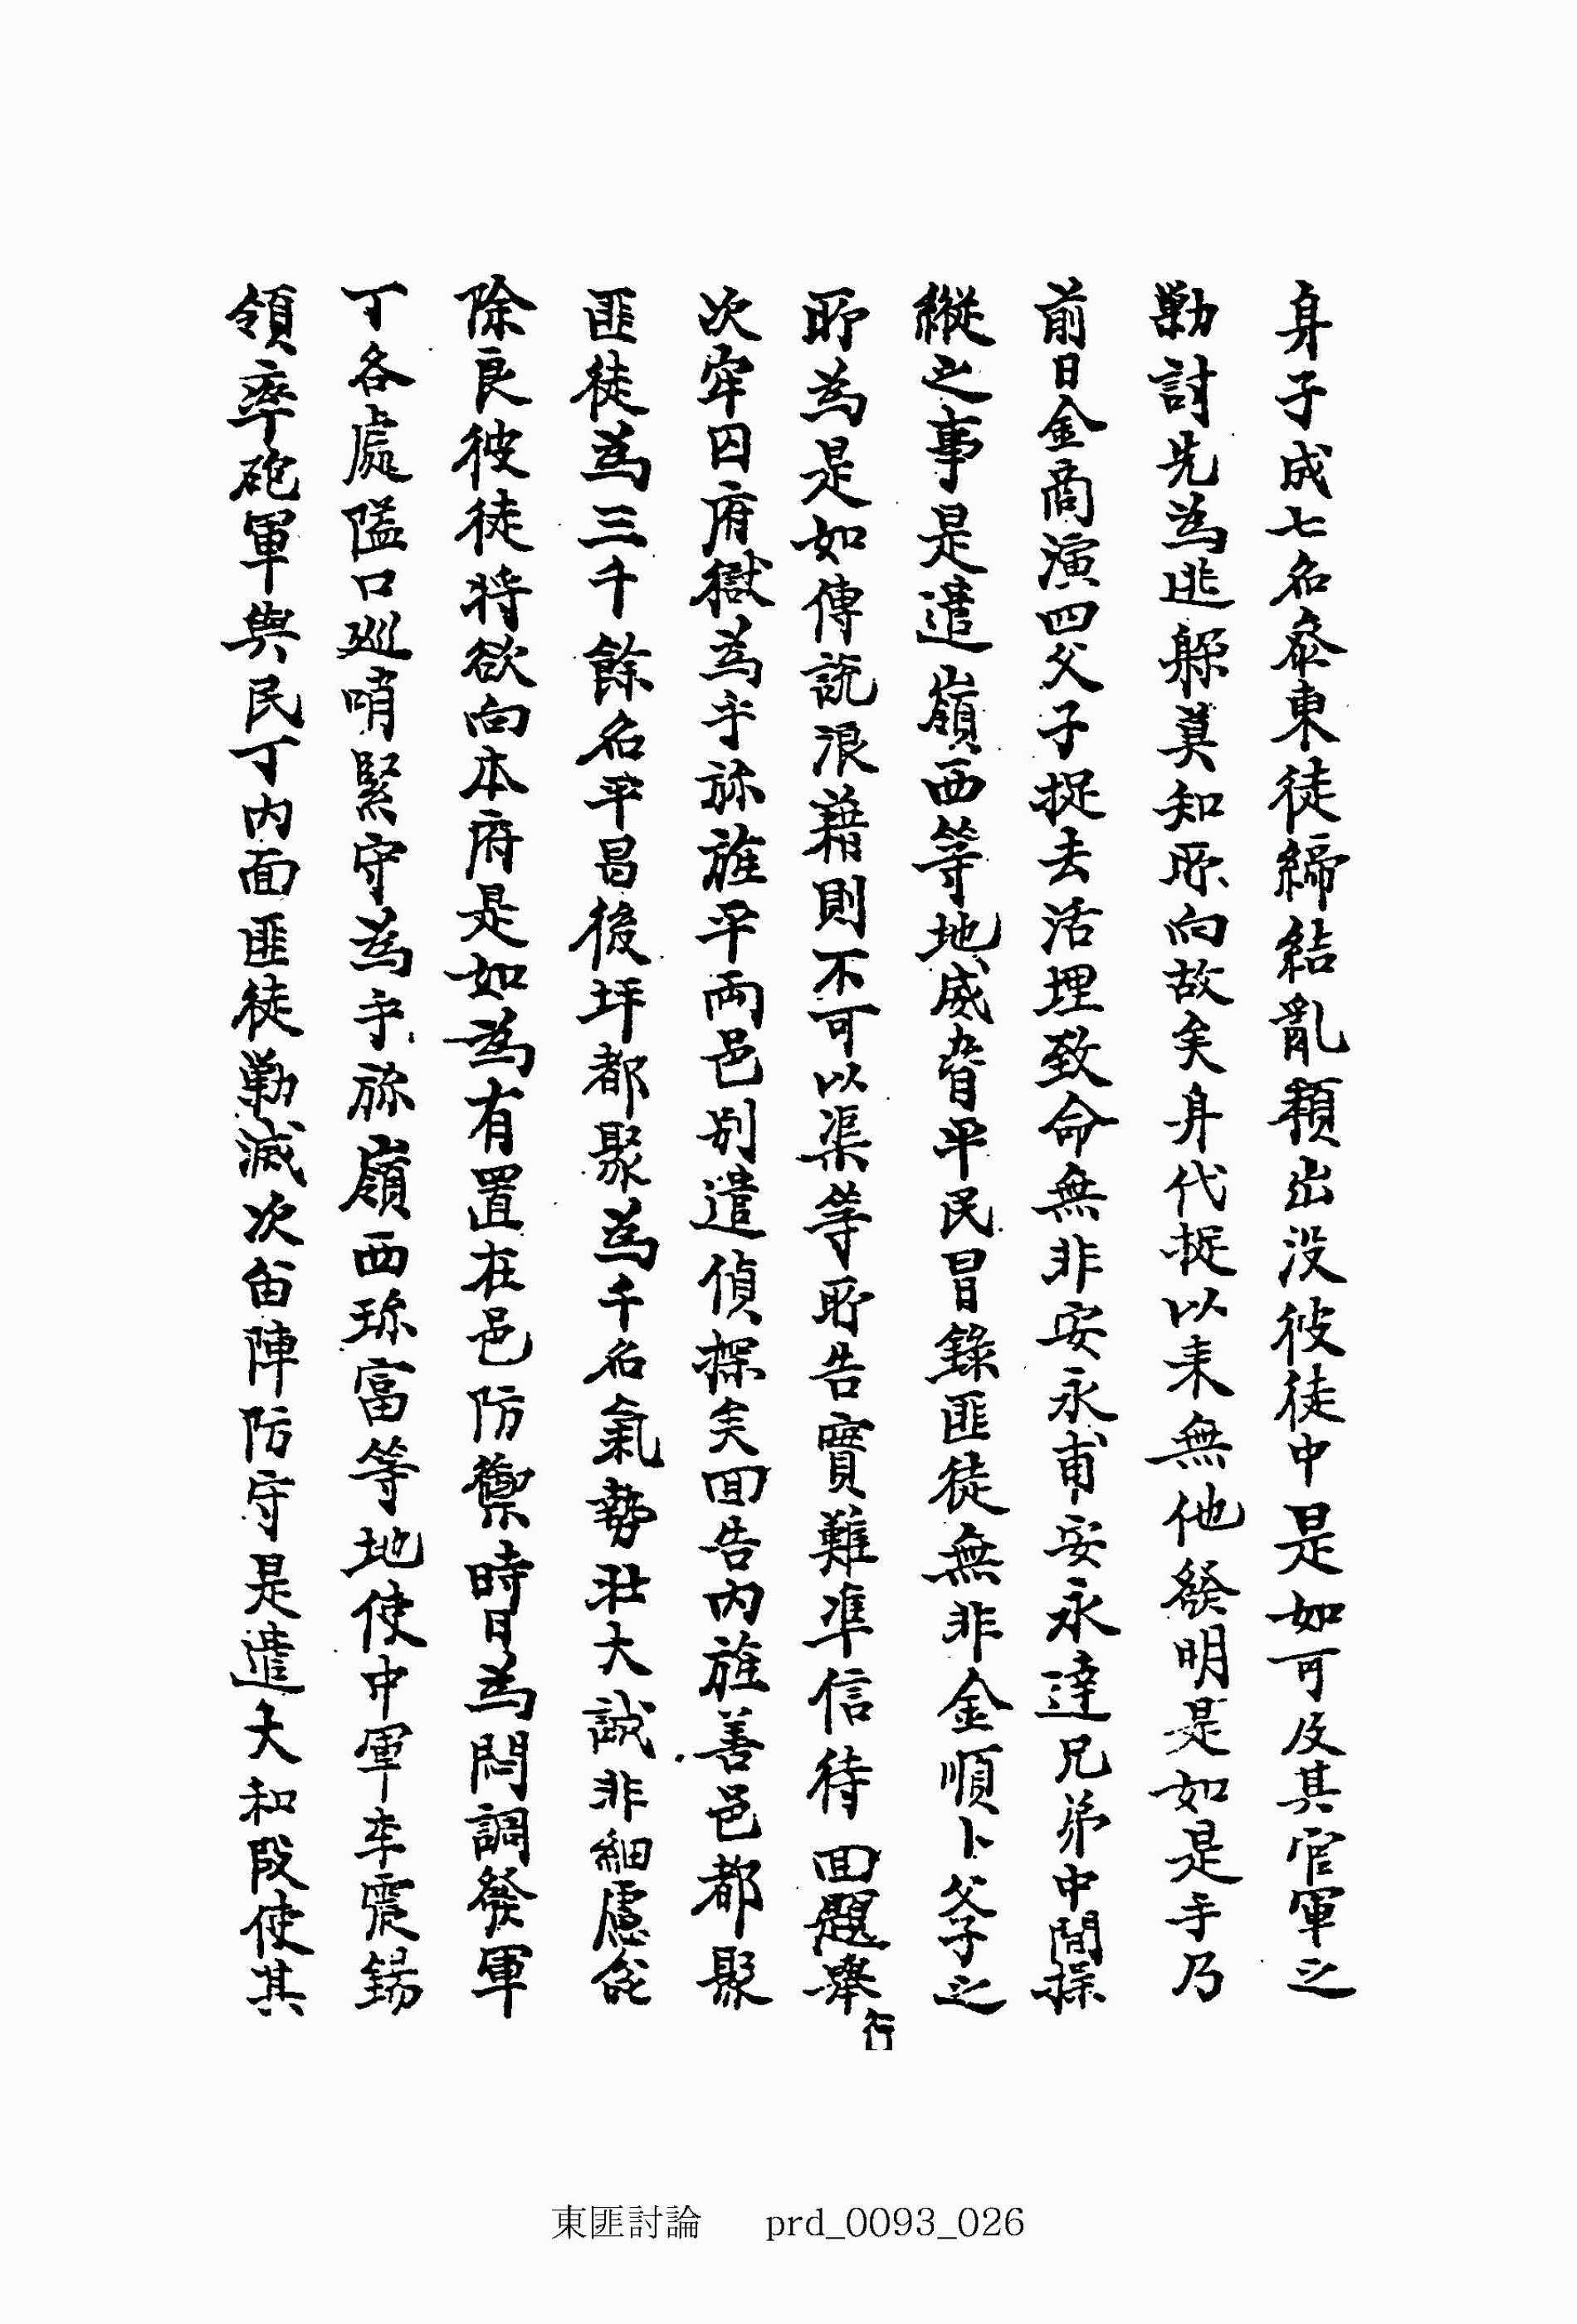 身子成七名叅東徒締結亂類出沒彼徒中是如可及其官軍之
勦討先爲逃躱莫知所向故矣身代捉以來無他發明是如是乎乃
前日金商演四父子捉去活埋致命無非安永甫安永達兄弟中間操
縱之事是遣嶺西等地威脅平民冒錄匪徒無非金順卜父子之
所爲是如傳說浪藉則不可以渠等所告實難準信待回題擧行
次牢囚府獄爲乎旀旌平兩邑別遣偵探矣回告內旌善邑都聚
匪徒爲三千餘名平昌後坪都聚爲千名氣勢壯大誠非細慮除
除良彼徒將欲向本府是如爲有置在邑防禦時日爲悶調發軍
丁各處隘口巡哨緊守爲乎旀嶺西珍富等地使中軍李震錫
領率砲軍與民丁內面匪徒勦滅次留陣防守是遣大和段使其
東匪討論 prd_0093_026